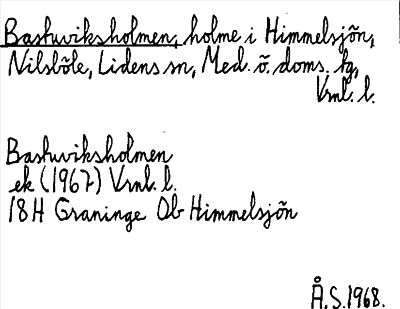 Bastuviksholmen, holme i Himmelsjön,
Nilsböle, Lidens sn, Med. ö. doms. tg,
Vrnl. l.
Bastuviksholmen
ek (1967) Vrnl. l.
18H Graninge Ob Himmelsjön
Å.S. 1968.